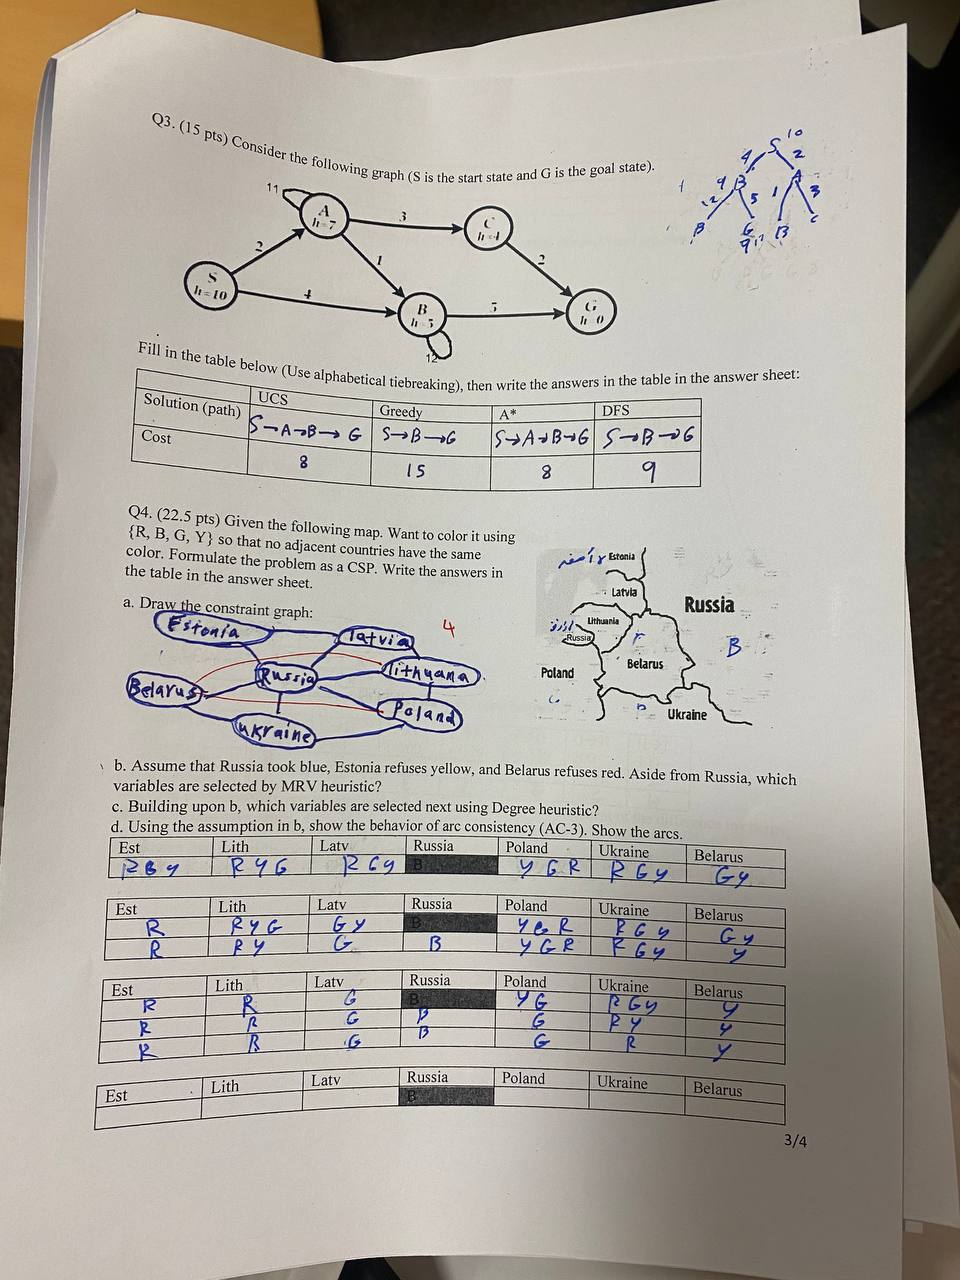 Q3. (15 pts) Consider the following graph (S is the start state and G is the goal state).
S 10
4 2
9 B A
12 5 1 3
B G B C
9
11
A
h=7
3
C
2
1
2
S
h=10
4
B
5
G
12
Fill in the table below (Use alphabetical tiebreaking), then write the answers in the table in the answer sheet:
UCS Greedy A* DFS
Solution (path) S→A→B→G S→B→G S→A→B→G S→B→G
Cost 8 15 8 9
Q4. (22.5 pts) Given the following map. Want to color it using
{R, B, G, Y} so that no adjacent countries have the same
color. Formulate the problem as a CSP. Write the answers in
the table in the answer sheet.
a. Draw the constraint graph:
4
Estonia
latvia
Russia
lithuana
Belarus
Poland
ukraine
Estonia
Latvia
Russia
Lithuania
Russia
B
Belarus
Poland
Ukraine
b. Assume that Russia took blue, Estonia refuses yellow, and Belarus refuses red. Aside from Russia, which
variables are selected by MRV heuristic?
c. Building upon b, which variables are selected next using Degree heuristic?
d. Using the assumption in b, show the behavior of arc consistency (AC-3). Show the arcs.
Est Lith Latv Russia Poland Ukraine Belarus
R B y R Y G R G y B Y G R R G y G y
Est Lith Latv Russia Poland Ukraine Belarus
R R Y G G Y B Y G R R G y G y
R R Y G B Y G R R G y y
Est Lith Latv Russia Poland Ukraine Belarus
R R G B Y G R G y y
R R G B G R Y y
R R G B G R y
Est Lith Latv Russia Poland Ukraine Belarus
B
3/4